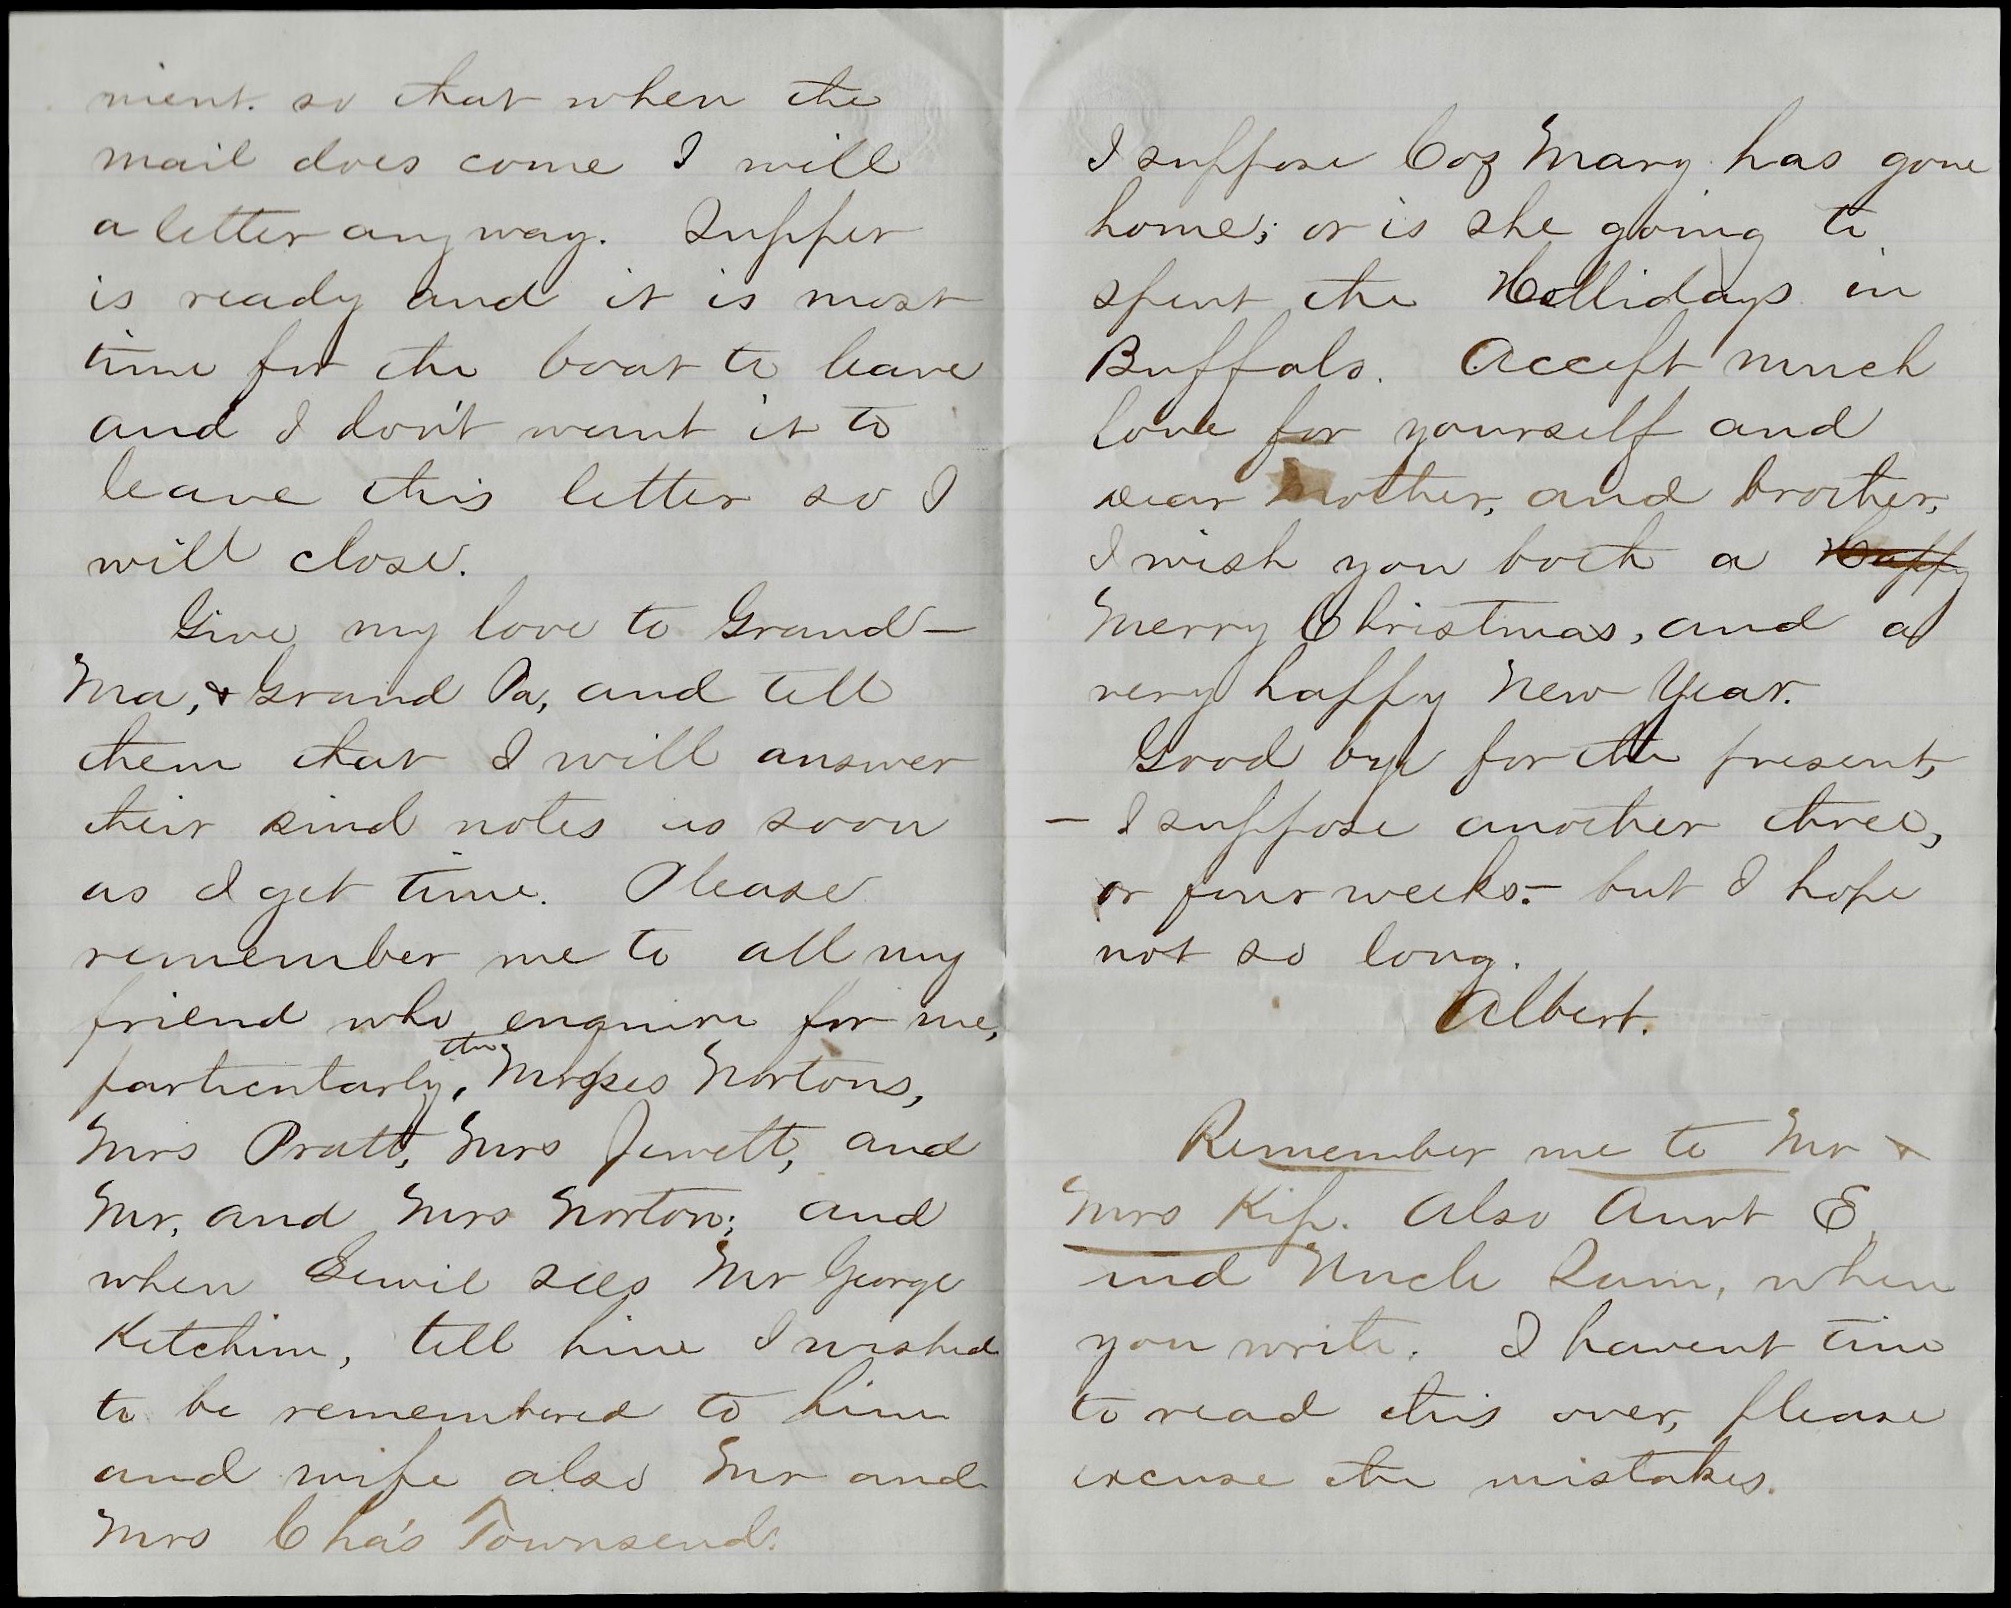 ment. so that when the
mail does come I will
a letter anyway. Supper
is ready and it is most
time for the boat to leave
and I don't want it to
leave this letter so I
will close.
Give my love to Grand-
Ma, & Grand Pa, and tell
them that I will answer
their kind notes as soon
as I get time. Please
remember me to all my
friend who enquire for me,
particularly, the Misses Nortons,
Mrs Pratt, Mrs Jewett, and
Mr. and Mrs Norton; and
when sees Mr George
Ketchim, tell him I wished
to be remembered to him
and wife also Mr and
Mrs Cha's Townsend.
I suppose Coz Mary has gone
home; or is she going to
spent the Hollidays in
Buffalo. Accept much
love for yourself and
dear Mother, and brother,
I wish you both a Happy
Merry Christmas, and a
very happy New Year.
Good bye for the present,
- I suppose another three,
or four weeks.- but I hope
not so long.
Albert.
Remember me to Mr &
Mrs Kip. Also Aunt E,
and Uncle Sam, when
you write. I havent time
to read this over, please
excuse the mistakes.